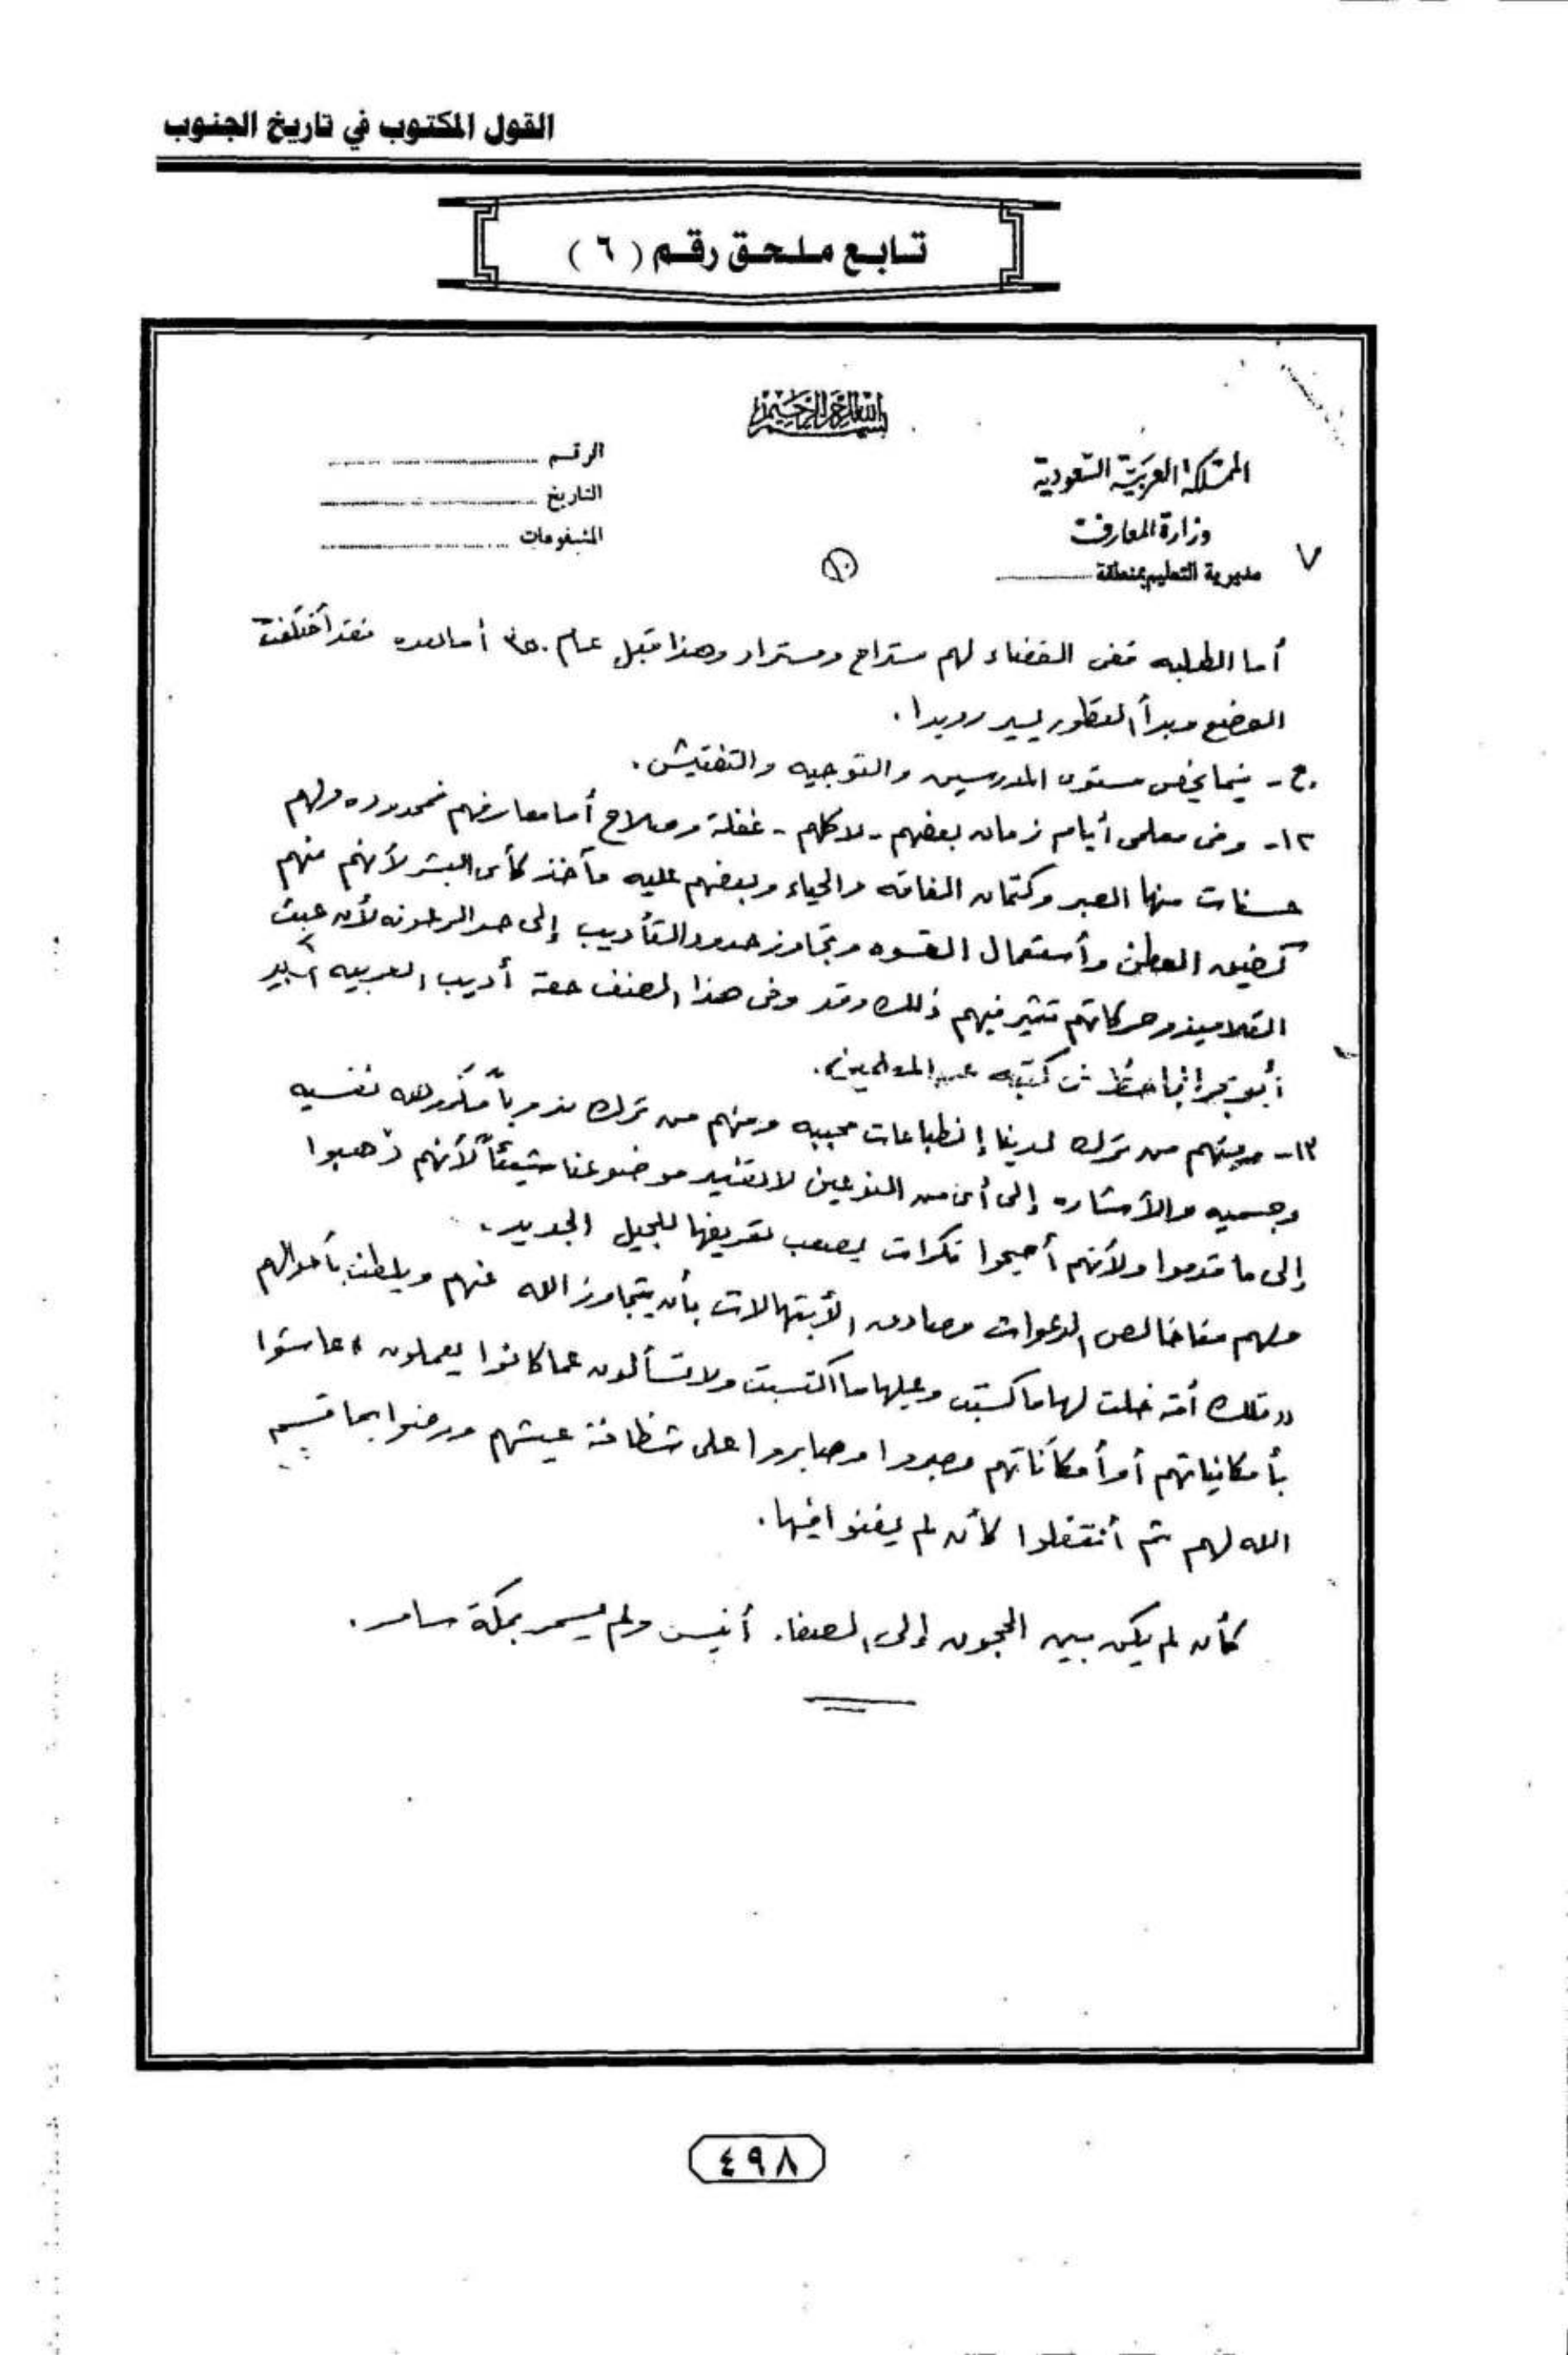 القول المكتوب في تاريخ الجنوب
تابع ملحق رقم ( ٦ )
بسم الله الرحمن الرحيم
المملكة العربية السعودية
وزارة المعارف
مديرية التعليم بمنطقة
الرقم
التاريخ
المشفوعات
٧
١٠
أما الطلبه ففى الفضاء لهم ستراح ومستراد وهذا قبل عام ٣٥٠ أما بعده فقد أختلفت
الوضع وبدأ التطور يسير رويدا .
ع - فيما يخص مستوى المدرسين والتوجيه والتفتيش .
١٢ - وفى معلمى أيام زمان بعضهم - لا كلهم - غفلة وصلاح أما معارفهم فمحدوده ولهم
حسنات منها الصبر وكتمان الفاقه والحياء وبعضهم عليه مآخذ كأى البشر لأنهم منهم
كضيق العطن وأستعمال القسوه وتجاوز حدود التأديب إلى حد الرعونه لأن عبث
التلاميذ وحركاتهم تثير فيهم ذلك وقد وفى هذا الصنف حقه أديب العربيه الكبير
أبو بحر الجاحظ فى كتبه عن المعلمين .
١٣ - ومنهم من ترك لدينا إنطباعات محببه ومنهم من ترك ندوباً مكروهه نفسيه
وجسميه والأشاره إلى أى من النوعين لا تفيد موضوعنا شيئاً لأنهم ذهبوا
إلى ما قدموا ولأنهم أصبحوا نكرات يصعب تعريفها للجيل الجديد .
ولهم منا خالص الدعوات وصادق الأبتهالات بأن يتجاوز الله عنهم ويلطف بأحوالهم
« تلك أمة خلت لها ما كسبت وعليها ما اكتسبت ولا تسألون عما كانوا يعملون » عاشوا
بأمكانياتهم أو أمكاناتهم وصبروا وصابروا على شظافة عيشهم ورضوا بما قسم
الله لهم ثم أنتقلوا كأن لم يغنوا فيها .
كأن لم يكن بين الحجون إلى الصفا . أنيس ولم يسمر بمكة سامر .
٤٩٨